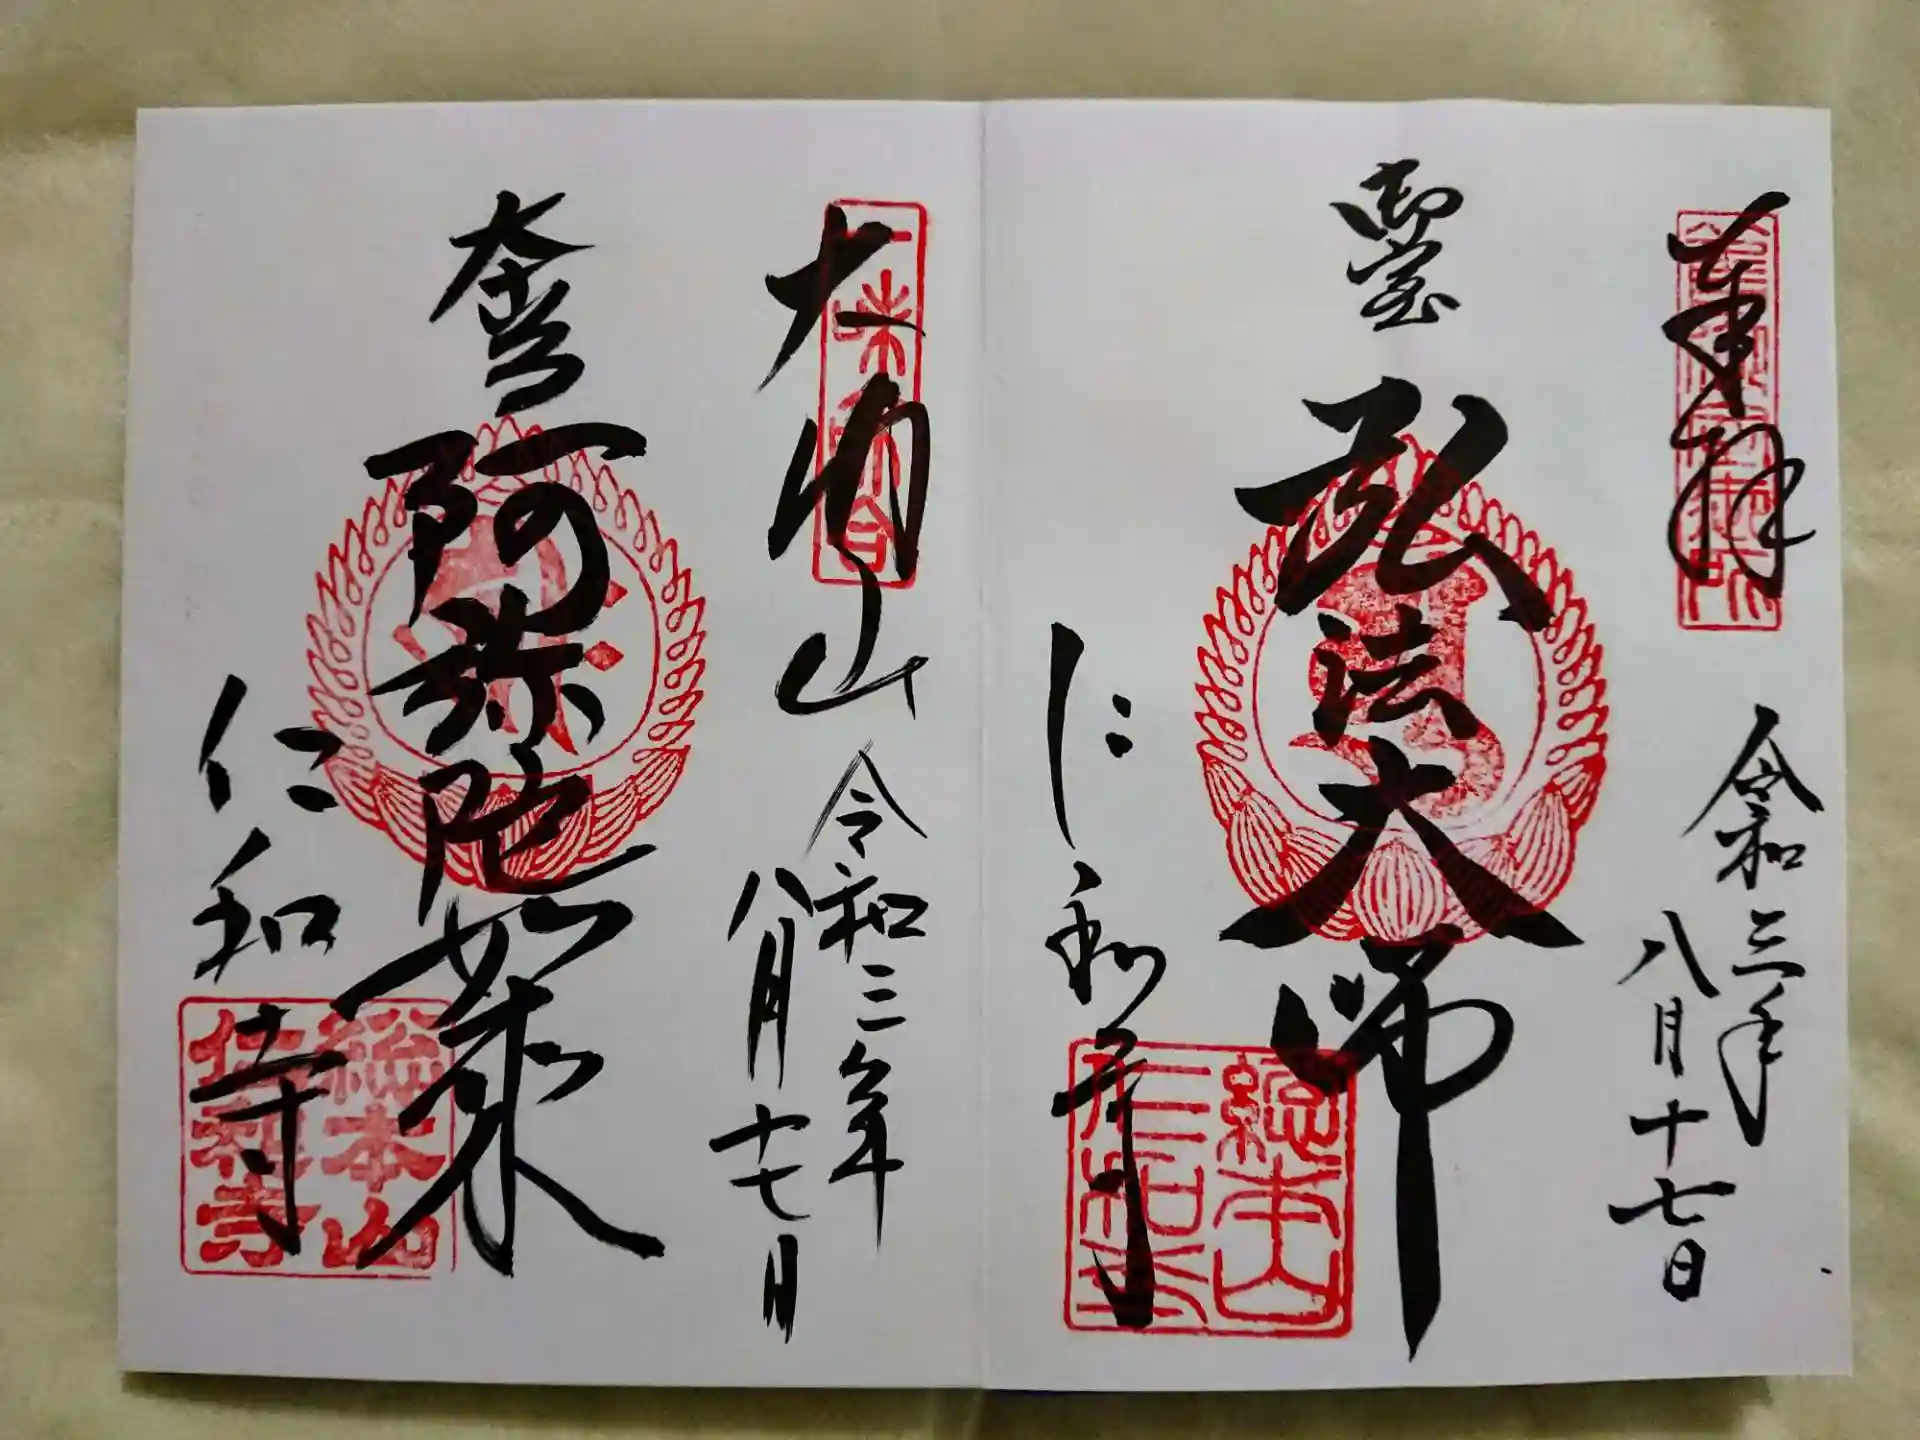 奉拝
令和三年
八月十七日
御室
弘法大師
仁和寺
総本山
仁和寺
大内山
一味和合
令和三年
八月十七日
阿弥陀如来
仁和寺
総本山
仁和寺